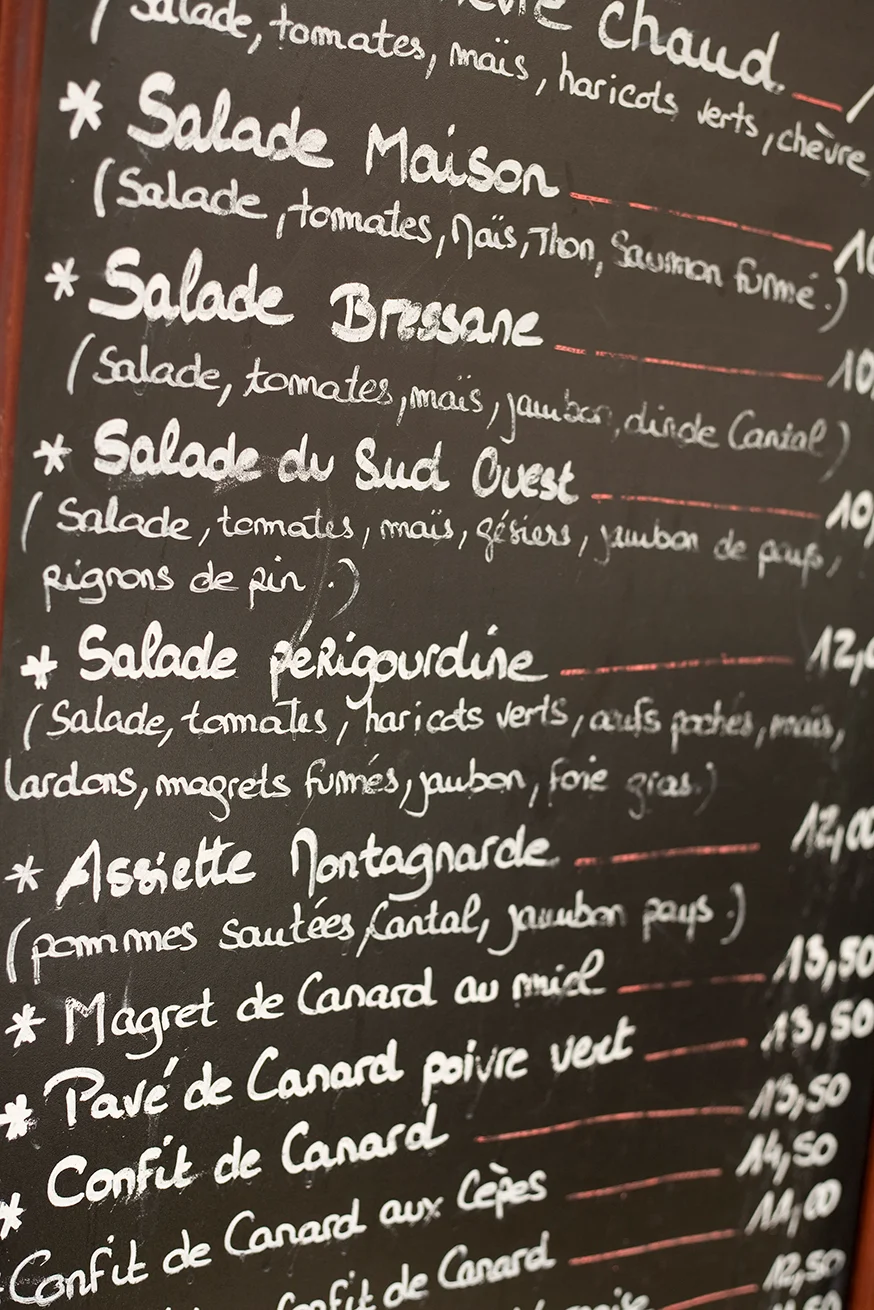 chaud
(Salade, tomates, maïs, haricots verts, chèvre
* Salade Maison
(Salade, tomates, Maïs, Thon, Saumon fumé.)
* Salade Bressane
(Salade, tomates, maïs, jambon, dinde Cantal)
* Salade du Sud Ouest
(Salade, tomates, maïs, gésiers, jambon de pays,
pignons de pin.)
* Salade péRigourdine 12,
(Salade, tomates, haricots verts, œufs pochés, maïs,
lardons, magrets fumés, jaubon, foie gras.)
* Assiette Montagnarde 12,00
(pommmes sautées, Cantal, jambon pays.)
* Magret de Canard au miel 13,50
* Pavé de Canard poivre vert 13,50
* Confit de Canard 13,50
* Confit de Canard aux Cèpes 14,50
Confit de Canard 12,50